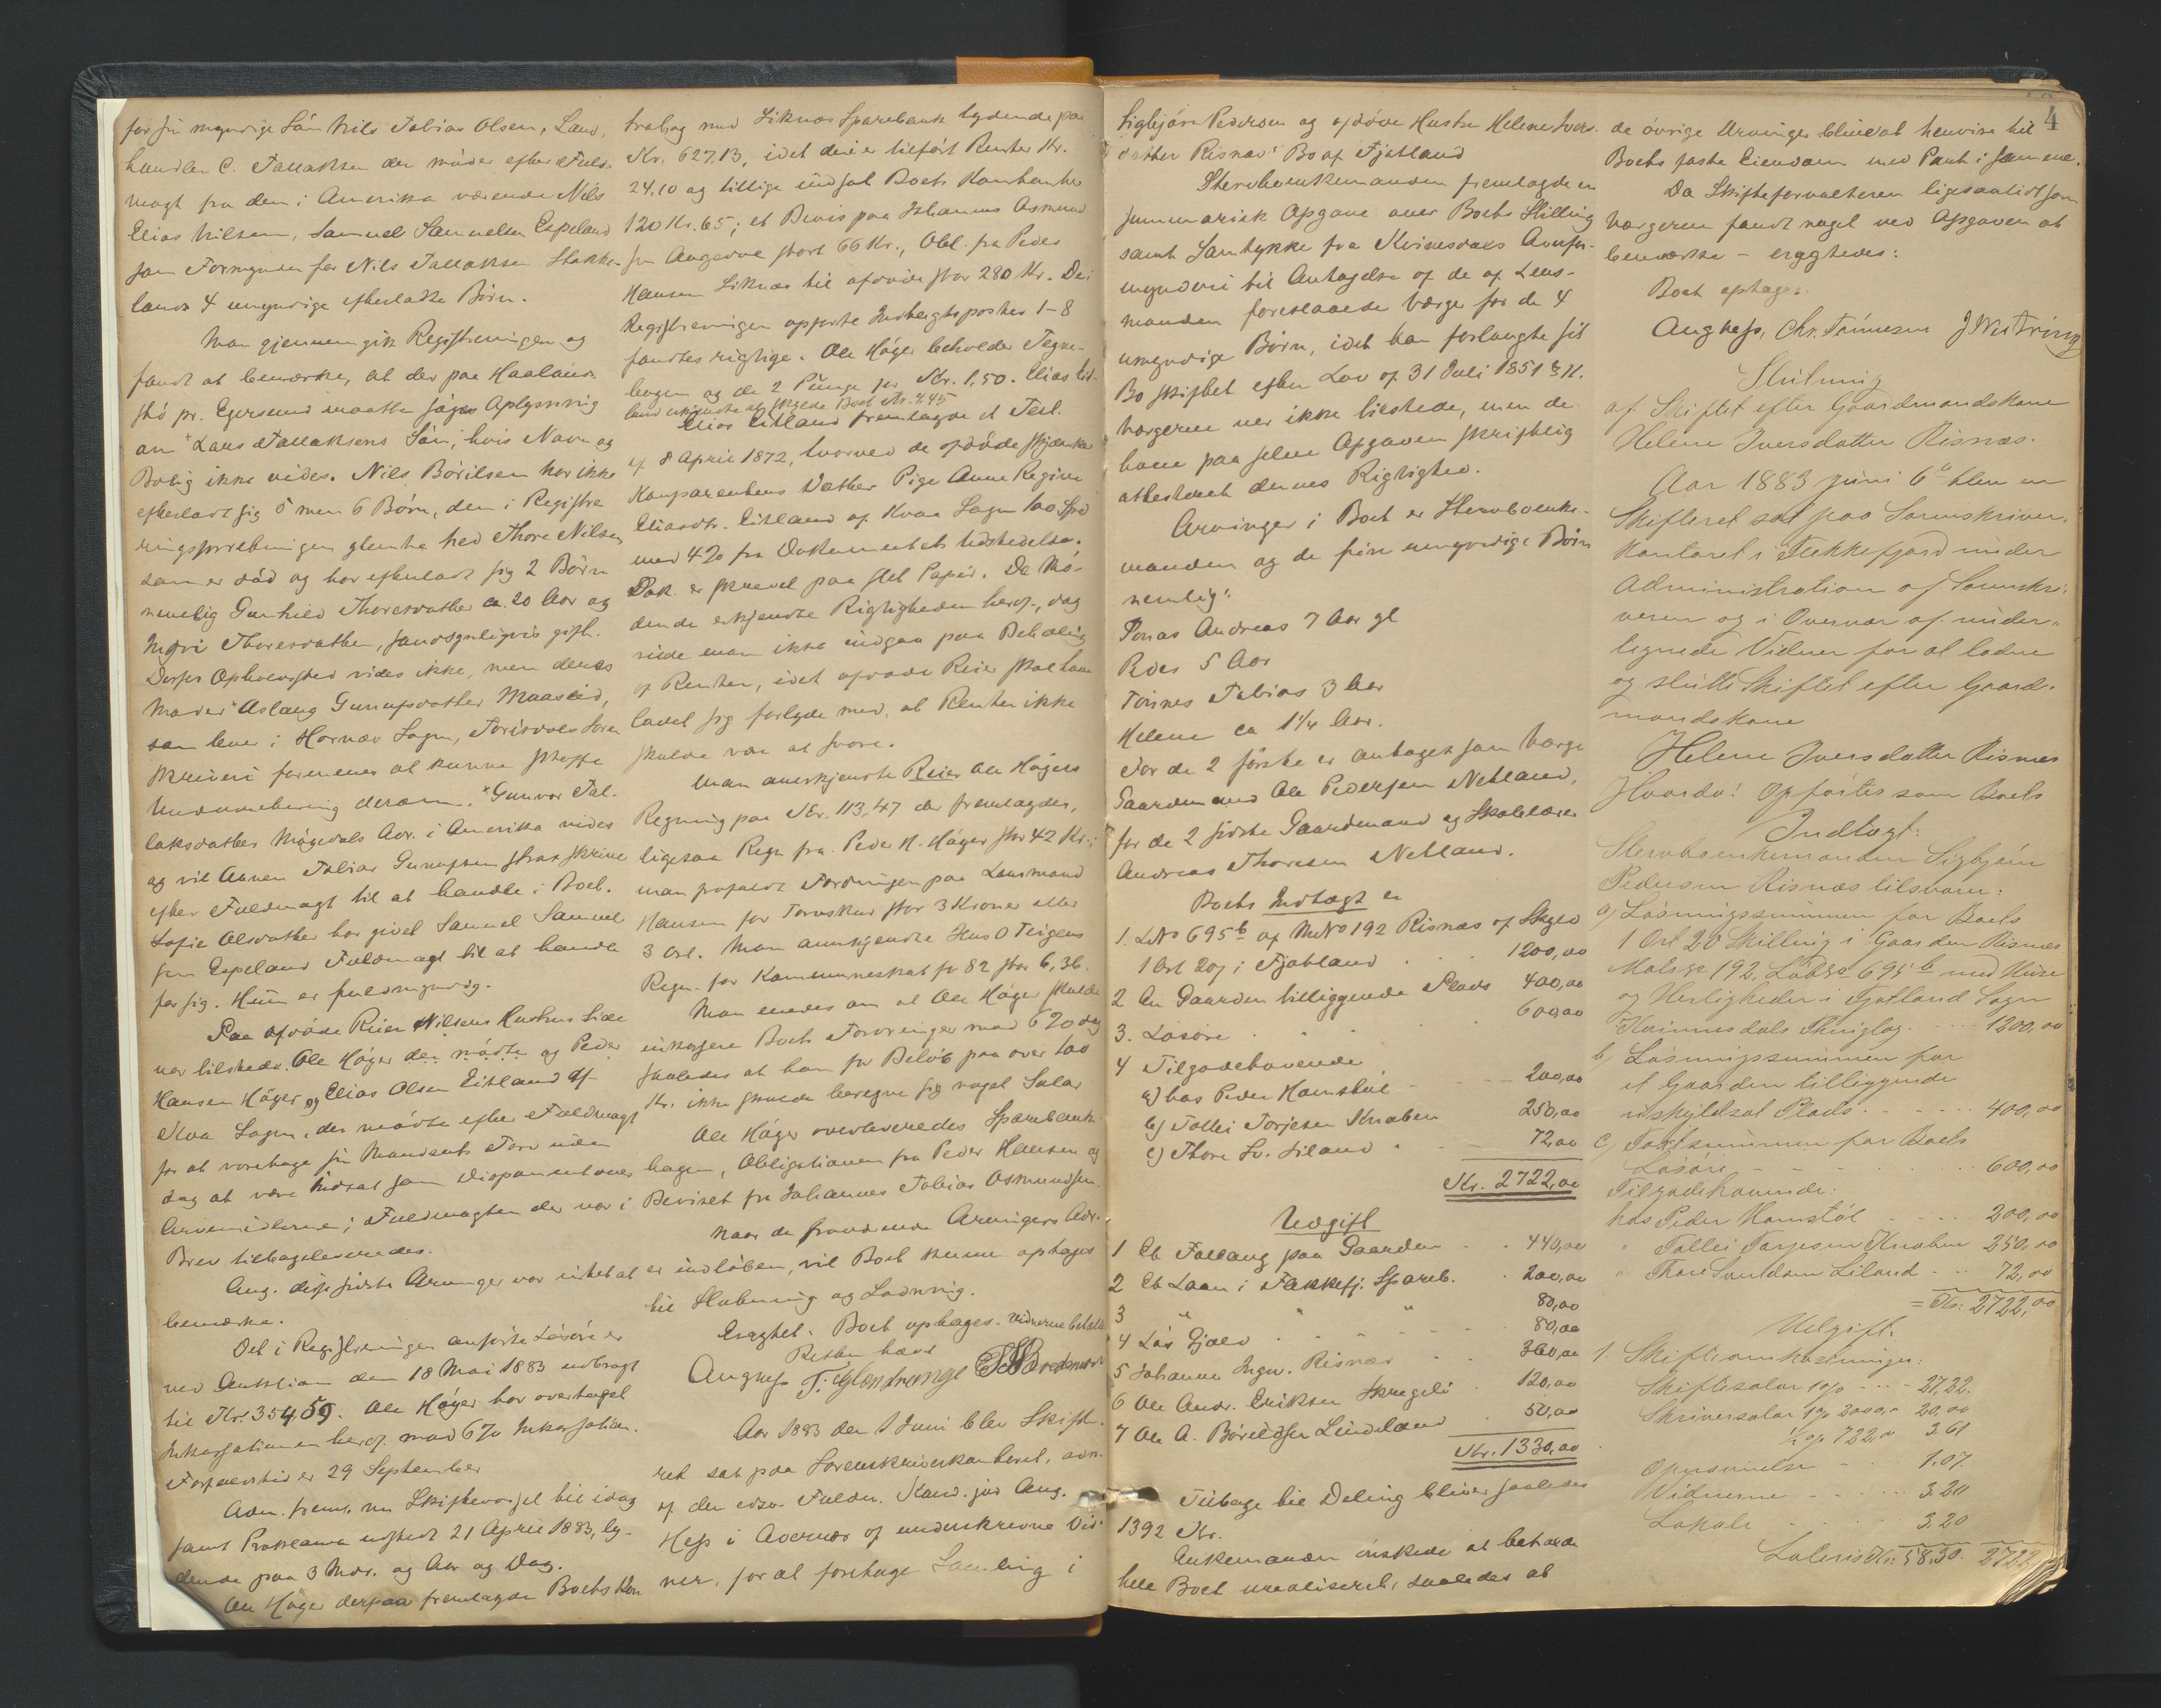 for sin myndige Sön Nils Tobias Olsen, Land,
handler C. Tallaksen der möder efter Fuld-
magt fra den i Amerika værende Nils
Elias Nilsen, Samuel Samuelsen Espeland
som Formynder for Nils Tallaksen Stakke-
lands 4 umyndige efterladte Börn.
Man gjennemgik Registreringen og
fandt at bemærke, at der paa Haaland
pr. Egersund maatte söges Oplysning
om Lars Tallaksens Sön, hvis Navn og
Bolig ikke vides. Nils Börilsen har ikke
efterladt sig 5 men 6 Börn, den i Registre
ringsforretningen glemte hed Thore Nilsen
som er död og har efterladt sig 2 Börn
nemlig Gunhild Thoresdatter ca. 20 Aar og
Thoresdatter, sandsynligvis gift.
Deres Opholdssted vides ikke, men deres
Moder Aslaug Gunufsdatter Maaseid,
som lever i Hornæs Sogn, Torisdals Soren
skriveri formenes at kunne skaffe
Underretning derom. Gunvor Tal-
laksdatter Mögedals Adr. i Amerika vides
og vil Anven Tobias Gunufsen strax skrive
efter Fuldmagt til at handle i Boet.
Sofie Olsdatter har givet Samuel Samuel
sen Espeland Fuldmagt til at handle
for sig. Hun er fuldmyndig.
Paa afdöde Reier Nilsens Hustrus Side
var tilstede. Ole Höyer der mödte og Peder
Hansen Höyer og Elias Olsen Eitland af
Kvaa Sogn, der mödte efter Fuldmagt
for at varetage sin Mandsents Tarv uden
dog at være indsat som Disponent over
Arvemidlerne; Fuldmagten der var i
Brev tilbageleveredes.
Ang. disse sidste Arvinger var intet at
bemærke.
Det i Registreringen anförte Lösöre er
ved Auktion den 18 Mai 1883 udbragt
til Kr. 354,59. Ole Höyer har overtaget
Inkassationen heraf mod 6 % Inkassation.
Forfaldstid er 29 September
Adm. freml. nu Skiftevarsel til idag
samt Proklama udstedt 21 April 1883, ly-
dende paa 3 Mdr. og Aar og Dag.
Ole Höyer derpaa fremlagde Boets Kon
trabog med Liknæs Sparebank lydende paa
Kr. 627.13, idet deri er tilfört Renter Kr.
24,10 og tillige indsat Boets Kontanter
120 Kr. 65; et Bevis paa Johannes Asmund
sen Angedve stort 66 Kr., Obl. fra Peder
Hansen Liknæs til afdöde stor 280 Kr. De i
Registreringen opförte Indtægtsposter 1-8
fandtes rigtige. Ole Höyer beholder Tegne-
bogen og de 2 Punge for Kr. 1,50. Elias Eit-
land erkjendte at skylde Boet Kr. 4,45
Elias Eitland fremlagde et Test.
af 8 April 1872, hvorved de afdöde skjænker
Komparentens Datter Pige Anne Regine
Eliasdtr. Eitland af Kvaa Sogn 100 Spd
med 4 % fra Dokumentets Udstedelse.
Dok. er skrevet paa slet Papir. De Mö-
dende erkjendte Rigtigheden heraf, dog
vilde man ikke indgaa paa Betaling
af Renter, idet afdöde Reier skal have
ladet sig forlyde med, at Renter ikke
skulde være at svare.
Man anerkjendte Reier Ole Höyers
Regning paa Kr. 113,47 der fremlagdes,
ligesaa Regn. fra Peder H. Höyer stor 42 Kr.;
man frafaldt Fordringen paa Lensmand
Hansen for Tornskur stor 3 Kroner eller
3 Ort. Man anerkjendte Hans O Teigens
Regn. for Kommuneskat for 82 stor 6,36.
Man enedes om at Ole Höyer skulde
inkassere Boets Fordringer mod 6 % dog
saaledes at han for Belöb paa over 100
Kr. ikke skulde beregne sig noget Salær
Ole Höyer overleveredes Sparebank-
bogen, Obligationen fra Peder Hansen og
Beviset fra Johannes Tobias Osmundsen.
Naar de fraværende Arvingers Adr.
er indlöben, vil Boet kunne optages
til Slutning og Lodning.
Eragtet: Boet optages. Vidnerne betalt
Retten hævet
Aug Hess T. Glendrange
Aar 1883 den 1 Juni blev Skift-
ret sat paa Sorenskriverkontoret, adm.
af den edsv. Fuldm. Kand. jur Aug.
Hess i Overvær af underskrevne Vid-
ner, for at foretage Samling i
4
Sigbjörn Pedersen og afdöde Hustru Helene Ivers-
datter Risnæs' Bo af Fjotland
Stervboenkemanden fremlagde en
summarisk Opgave over Boets Stilling
samt Samtykke fra Kvinesdals Overfor-
mynderi til Antagelse af de af Lens-
manden foreslaaede Værge for de 4
umyndige Börn, idet han forlangte sit
Bo skiftet efter Lov af 31 Juli 1851 § 11.
Værgerne var ikke tilstede, men de
have paa selve Opgaven skriftlig
attesteret dennes Rigtighed.
Arvinger i Boet er Stervboenke-
manden og de fire umyndige Börn
nemlig:
Jonas Andreas 7 Aar gl
Peder 5 Aar
Tönnes Tobias 3 Aar
Helene ca 1 1/4 Aar.
For de 2 förste er antaget som Værge
Gaardmand Ole Pedersen Netland,
for de 2 sidste Gaardmand og Skolelærer
Andreas Thoresen Netland.
Boets Indtægt er
1. L№ 695 b af M№ 192 Risnæs af Skyld
1 Ort 20 j i Fjotland 1200,00
2 En Gaarden tilliggende Plads 400,00
3. Lösöre 600,00
4 Tilgodehavende
a) hos Peder Hamstöl 200,00
b) Tollei Torjesen Knaben 250,00
c) Thore Sv. Liland 72,00
Kr. 2722,00
Udgift
1 Et Follaug paa Gaarden 440,00
2 Et Laan i Flekkefj. Spareb. 200,00
3 " " " 80,00
4 Lös Gjæld 80,00
5 Johanne Ingv. Risnæs 360,00
6 Ole Andr. Eriksen Skregeli 120,00
7 Ole A. Börildsen Lindeland 50,00
Kr. 1330,00
Tilbage til Deling bliver saaledes
1392 Kr.
Enkemanden önskede at beholde
hele Boet urealiseret, saaledes at
de övrige Arvinger bliver at henvise til
Boets faste Eiendom med Pant i samme.
Da Skifteforvalteren ligesaalidt som
Værgerne fandt noget ved Opgaven at
bemærke - eragtedes:
Boet optages.
Aug Hess, Chr. Tönnesen
Slutning
af Skiftet efter Gaardmandskone
Helene Iversdatter Risnæs.
Aar 1883 Juni 6 blev en
Skifteret sat paa Sorenskriver-
kontoret i Flekkefjord under
Administration af Sorenskri-
veren og i Overvær af under-
tegnede Vidner for at lodne
og slutte Skiftet efter Gaard-
mandskone
Helene Iversdatter Risnæs
Hvorda! Opförtes som Boets
Indtægt:
Stervboenkemanden Sigbjörn
Pedersen Risnæs tilsvarer:
a) Lösningssummen for Boets
1 Ort 20 Skilling i Gaarden Risnæs
Mats № 192, Löb№ 695 b med Huse
og Herligheder i Fjotland Sogn
Kvinnesdals Thinglag 1200,00
b) Lösningssummen for
et Gaarden tilliggende
uskyldsat Plads 400,00
c) Taxtsummen for Boets
Lösöre 600,00
Tilgodehavende:
hos Peder Hamstöl 200,00
" Tollei Torjesen Knaben 250,00
" Thore Svendsen Liland 72,00
= Kr. 2722,00
Udgift.
1. Skifteomkostninger:
Skiftesalær 1 % 27,22.
Skriversalær 1 % 2000,- 20,00
1/2 % 722,00 3,61
1.07.
Vidnerne 3.20
Lokale 3.20
Lateris Kr. 58,30. 2722,